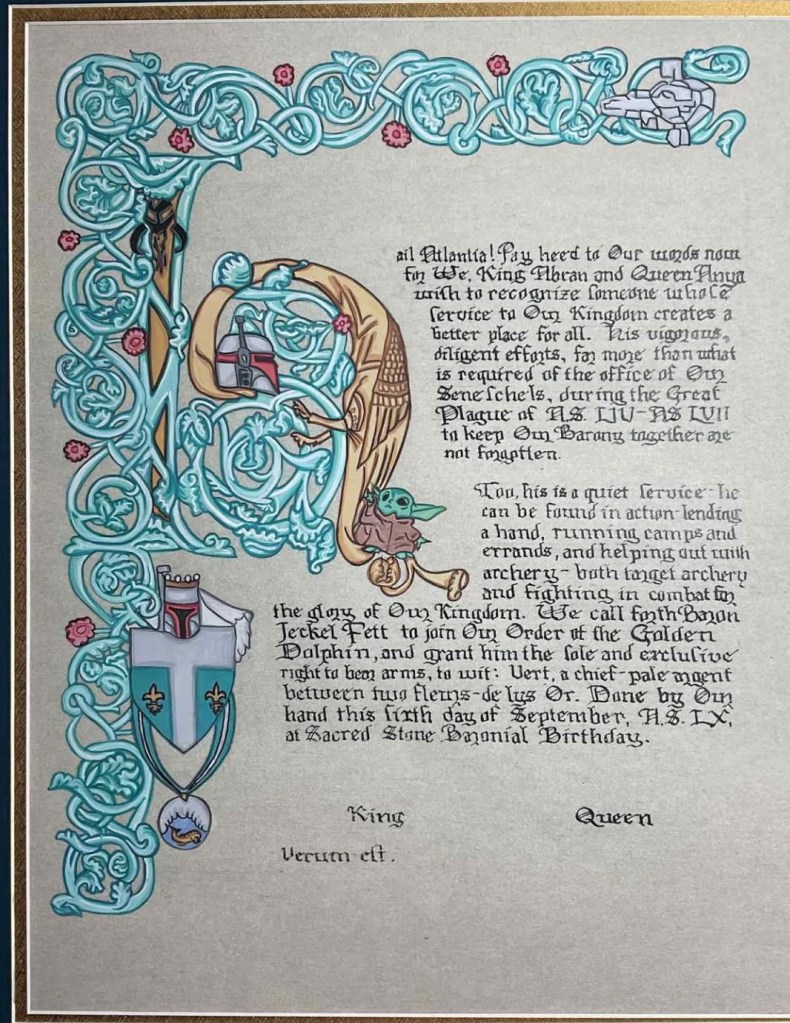 Hail Atlantia! Pay heed to Our words now
for We, King Abran and Queen Anya
wish to recognize someone whose
service to Our Kingdom creates a
better place for all. His vigorous,
diligent efforts, far more than what
is required of the office of Our
Seneschels, during the Great
Plague of A.S. LIV-AS LVII
to keep Our Barony together are
not forgotten.
Too, his is a quiet service-he
can be found in action-lending
a hand, running camps and
errands, and helping out with
archery-both target archery
and fighting in combat for
the glory of Our Kingdom. We call forth Baron
Jeckel Fett to join Our Order of the Golden
Dolphin, and grant him the sole and exclusive
right to bear arms, to wit: Vert, a chief-pale argent
between two fleurs-de lys Or. Done by Our
hand this sixth day of September, A.S. LX,
at Sacred Stone Baronial Birthday.
King Queen
Verum est.